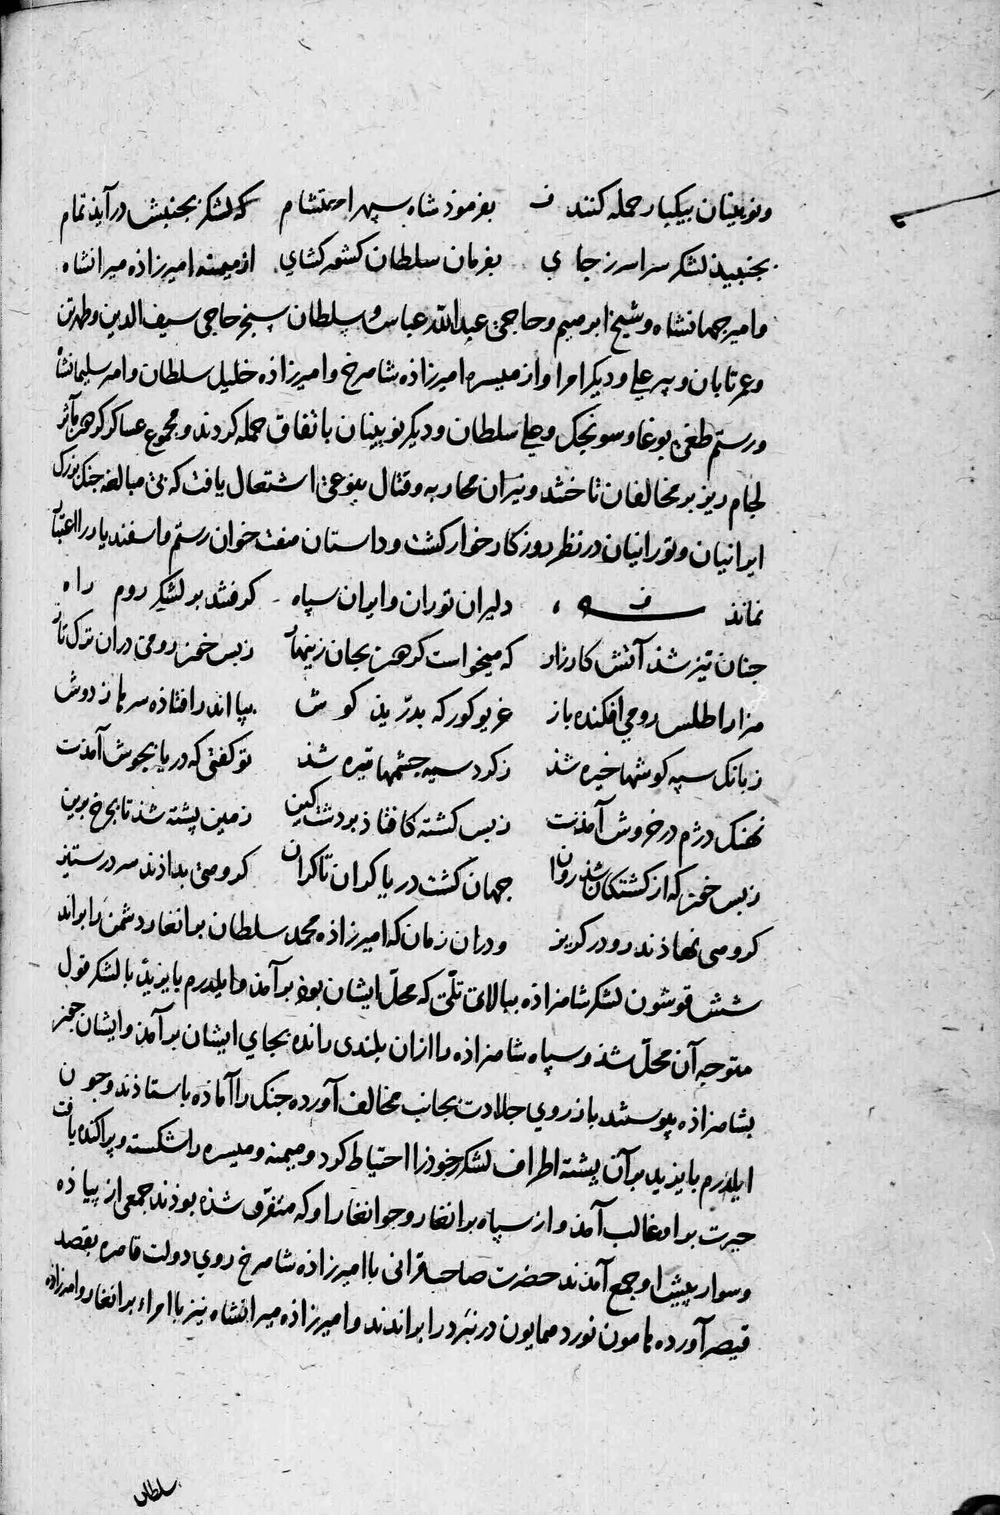 ونویینان بیکبار حمله کنند ف بفرموذ شاه سپهر احتشام که لشکر بجنبش درآیذ تمام
بجنبیذ لشکر سراسر ز جای بفرمان سلطان کشور کشای از میمنه امیرزاذه میرانشاه
وامیر جهانشاه و شیخ ابرهیم و حاجی عبدالله عباس و سلطان سنجر حاجی سیف الدین و طهرتن
وعمر تابان و پیر علی و دیکر امرا و از میسره امیرزاذه شاهرخ و امیرزاذه خلیل سلطان و امیر سلیمانشاه
ورستم طغی بوغا و سونجک و علی سلطان و دیکر نویینان باتفاق حمله کردند و مجموع عساکر کوهر مآثر
لجام ریز بر مخالفان تاختند و نیران محاربه و قتال بنوعی اشتعال یافت که بی مبالغه جنک بزرک
ایرانیان و تورانیان در نظر روزکار خوار کشت و داستان هفت خوان رستم و اسفندیار را اعتبار
نماند دلیران توران و ایران سپاه کرفتند بر لشکر روم راه
جنان تیز شذ آتش کارزار که میخواست کوهر بجان زینهار ز بس خون رومی دران ترک تاز
هزار اطلس رومی افکنده باز غریو کورکه بدرّیذ کوش بپا اندر افتاذه سرها ز دوش
ز بانک سپه کوشها خیره شذ ز کرد سپه جشمها تیره شذ تو کفتی که دریا بجوش آمذت
نهنک دژم در خروش آمذت ز بس کشته کافتاذ بر دشت کین زمین پشته شذ تا بچرخ برین
ز بس خون که از کشتکان شذ روان جهان کشت دریا کران تا کران کروهی بداذند سر در ستیز
کروهی نهاذند رو در کریز ودران زمان که امیرزاذه محمد سلطان برانغار دشمن را براند
شش قوشون لشکر شاهزاذه ببالای تلّی که محلّ ایشان بوذ برآمذ و ایلدرم بایزیذ با لشکر قول
متوجه آن محلّ شذ و سپاه شاهزاذه را ازان بلندی رانده بجای ایشان برآمذ و ایشان جون
بشاهزاذه پیوستند باز روی جلادت بجانب مخالف آورده جنک را آماذه باستاذند و جون
ایلدرم بایزیذ بر آن پشته اطراف لشکر خوذرا احتیاط کرد و میمنه و میسره را شکسته و پراکنده یافت
حیرت برو غالب آمذ و از سپاه برانغار و جوانغار او که متفرق شذه بوذند جمعی از پیاذه
وسوار پیش او جمع آمذند حضرت صاحب قرانی با امیرزاذه شاهرخ روی دولت قاهره بقصد
قیصر آورده هامون نورد همایون در نبرد را براندند و امیرزاذه میرانشاه نیز با امراء برانغار و امیرزاذه
سلطان